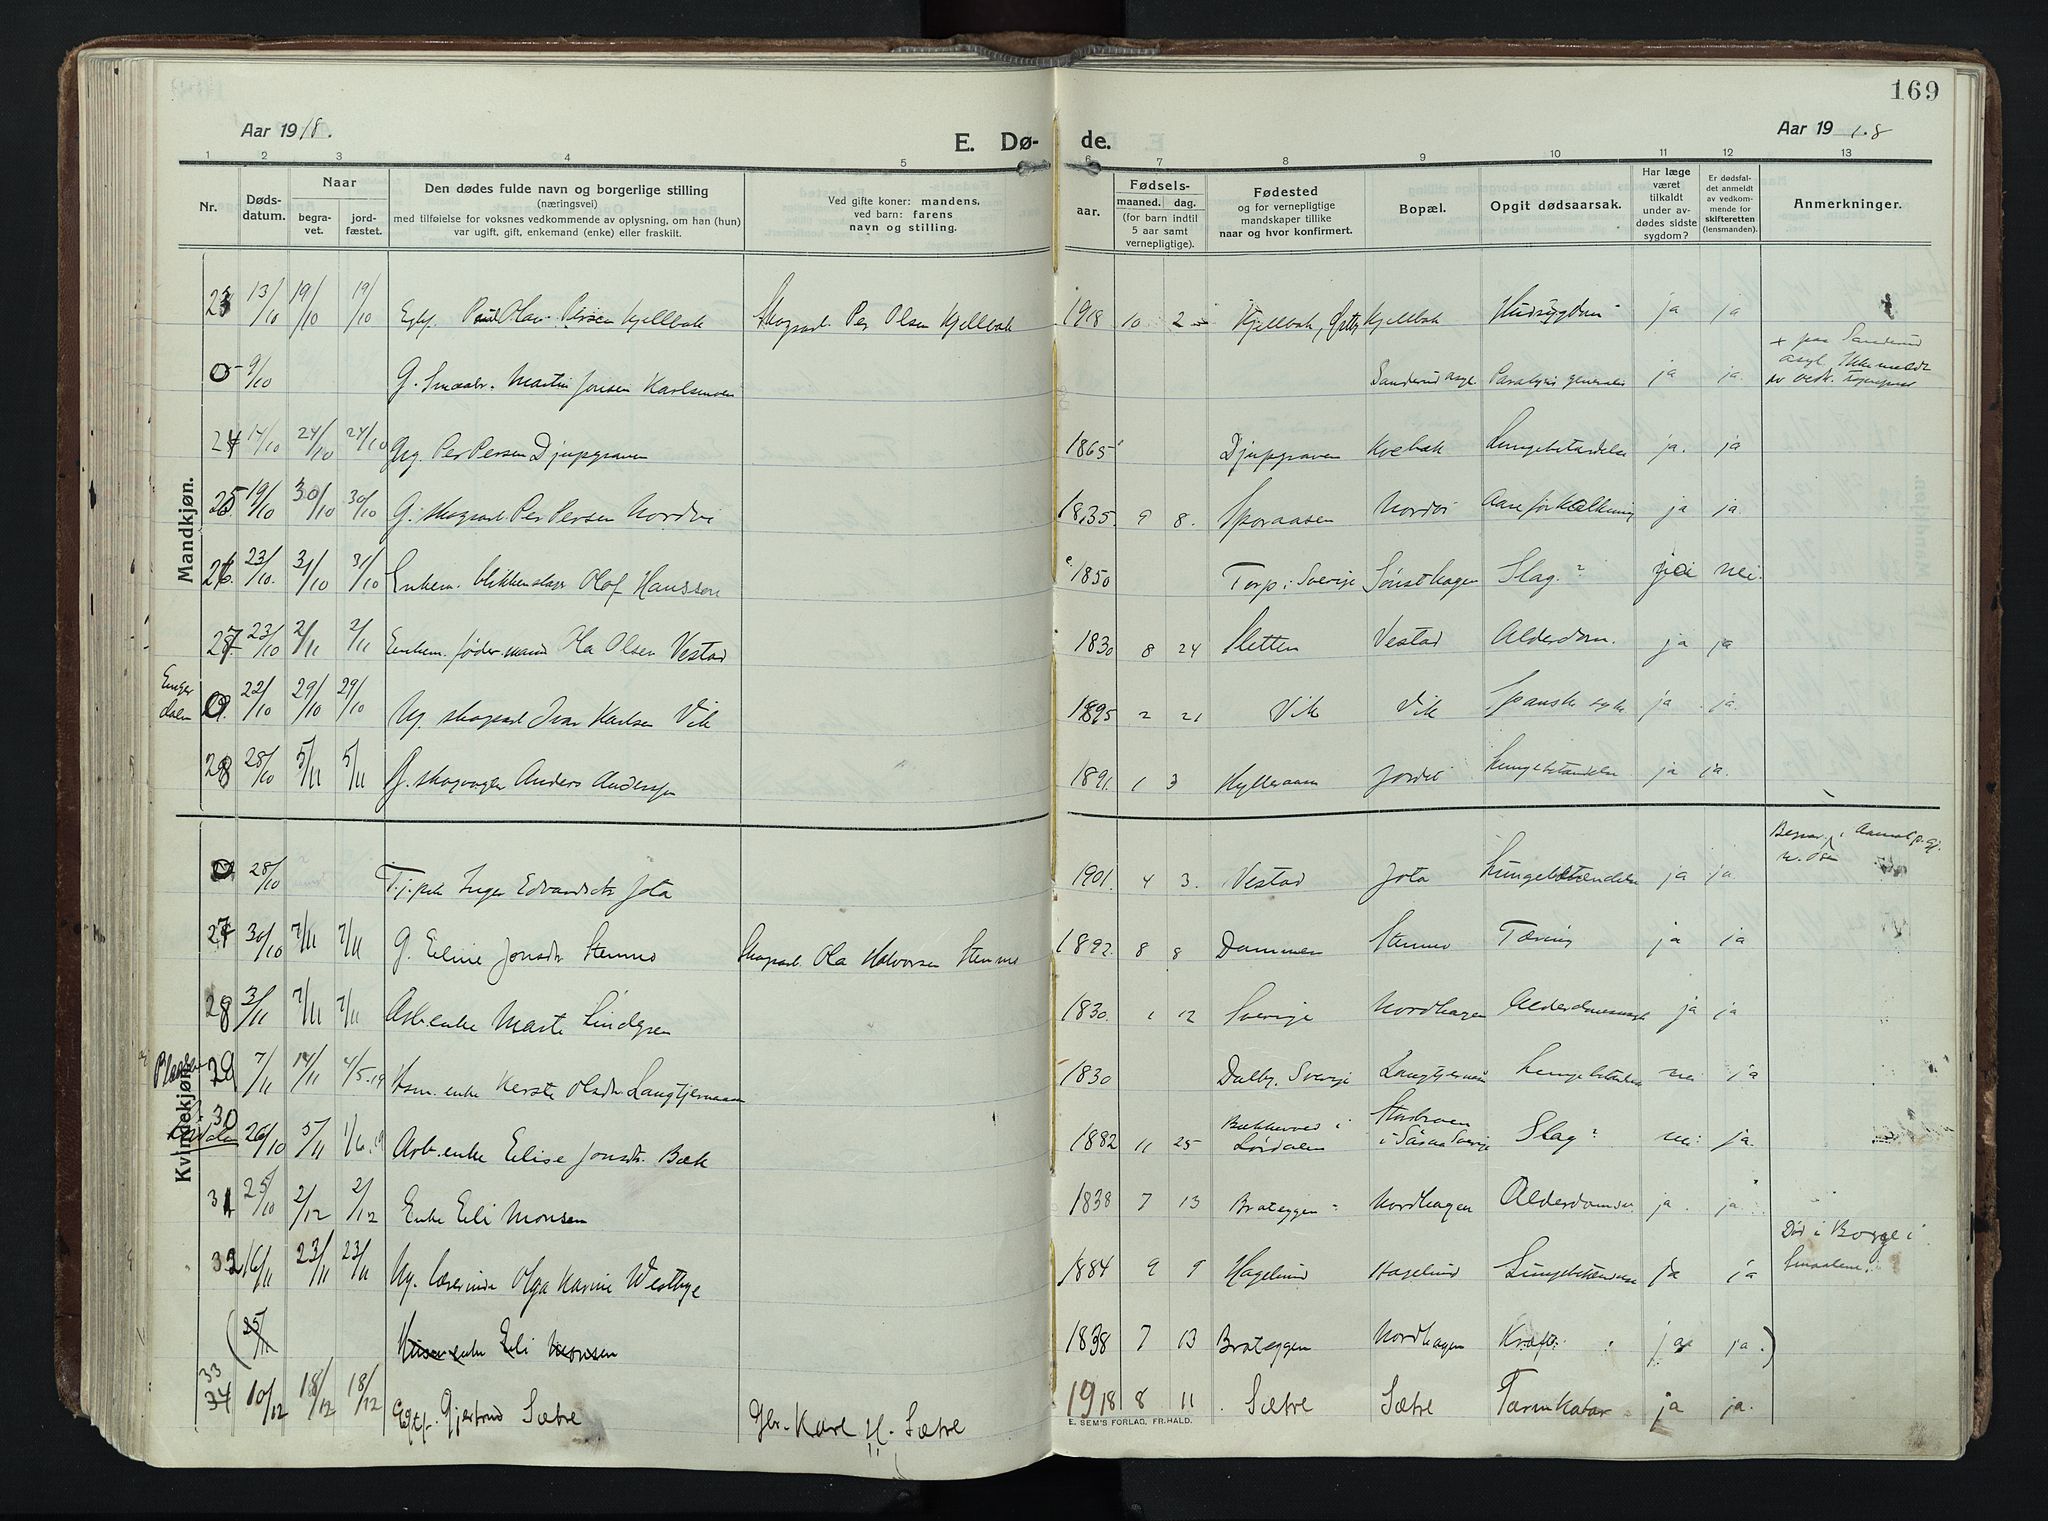 169
Aar 1918.
E. Dø-
de.
Aar 1918
1 2 3 4 5 6 7 8 9 10 11 12 13
Nr.
Døds-
datum.
Naar
begra-
vet.
jord-
fæstet.
Den dødes fulde navn og borgerlige stilling
(næringsvei)
med tilføielse for voksnes vedkommende av oplysning, om han (hun)
var ugift, gift, enkemand (enke) eller fraskilt.
Ved gifte koner: mandens,
ved barn: farens
navn og stilling.
Fødsels-
aar.
maaned.
dag.
(for barn indtil
5 aar samt
vernepligtige).
Fødested
og for vernepligtige
mandskaper tillike
naar og hvor konfirmert.
Bopæl.
Opgit dødsaarsak.
Har læge
været
tilkaldt
under av-
dødes sidste
sygdom?
Er dødsfal-
det anmeldt
av vedkom-
mende for
skifteretten
(lensmanden).
Anmerkninger.
Mandkjøn.
23 13/10 19/10 19/10 Egtf. Paul Olav Persen Kjellbak Skogsarb. Per Olsen Kjellbak 1918 10 2 Kjellbak, Kjellbak ja ja
0 9/10 G. Smaabr. Martin Jonsen Karlsmoen Sanderud asyl Paralysis generalis ja ja. + paa Sanderud asyl.
24 14/10 24/10 24/10 Per Persen Djupgraven 1865 Djupgraven Lungebetændelse ja. ja
25 19/10 30/10 30/10 G. skogsarb. Per Persen Nordvi 1835 9 8. Sporaasen Nordvi Aareforkalkning ja ja
26. 23/10. 31/10 31/10 Enkem. blikkenslager Olof Hanssen 1850 Torp i Sverige Sønsthagen Slag? ja nei.
27. 23/10 2/11 2/11 Enkem. føder.mand Ola Olsen Vestad 1830 8 24 Sletten Vestad Alderdom. ja ja
Engerdalen 0 22/10 29/10 29/10 Ug. skogsarb Ivar Karlsen Vik 1895 2 21 Vik Vik Spansk syke ja ja.
28 28/10 5/11 5/11 G. skogvogter Anders Andersen 1891. 1 3 Hylleraasen Jordet Lungebetændelse ja ja.
Kvindekjøn.
0 28/10 Tj.pike Inger Edvardsdtr Jota 1901. 4 3. Vestad Jota Lungebetændelse ja ja.
27 30/10 7/11 7/11 G. Eline Jonsdtr Stenmo Skogsarb. Ola Halvorsen Stenmo 1892. 8 8 Dammen Stenmo Tæring ja ja
28 3/11 7/11 7/11 Arb.enke Marte Lindgren 1830. 1 12 Sverige Nordhagen ja ja
Plaasen 29 7/11 14/11 4/5.19 Husm. enke Kerste Olsdtr Langtjernaasen 1830 Dalby, Sverige Langtjernaasen Lungebetændelse nei ja
30 26/10 5/11 1/6.19 Arb.enke Elise Jonsdtr. Bæk 1882 11 25 Slag? nei ja.
31 25/10 2/12 2/12 Enke Eli Monsen 1838 7 13 Brateggen Nordhagen ja. ja
32 16/11 23/11 23/11 Ug. lærerinde Olga Karine Westbye 1884 9 9 Hagelund Hagelund Lungebetændelse ja ja Død i Borge i Smaalene.
(25/11 Husm.enke Eli Monsen 1838 7 13 Brateggen Nordhagen Kræft ja ja.)
33
34 10/12 18/12 18/12 Egtf. Gjertrud Sætre Gbr. Karl H. Sætre 1918 8 11 Sætre Sætre Tarmkatar ja ja.
E. SEM'S FORLAG, FR.HALD.